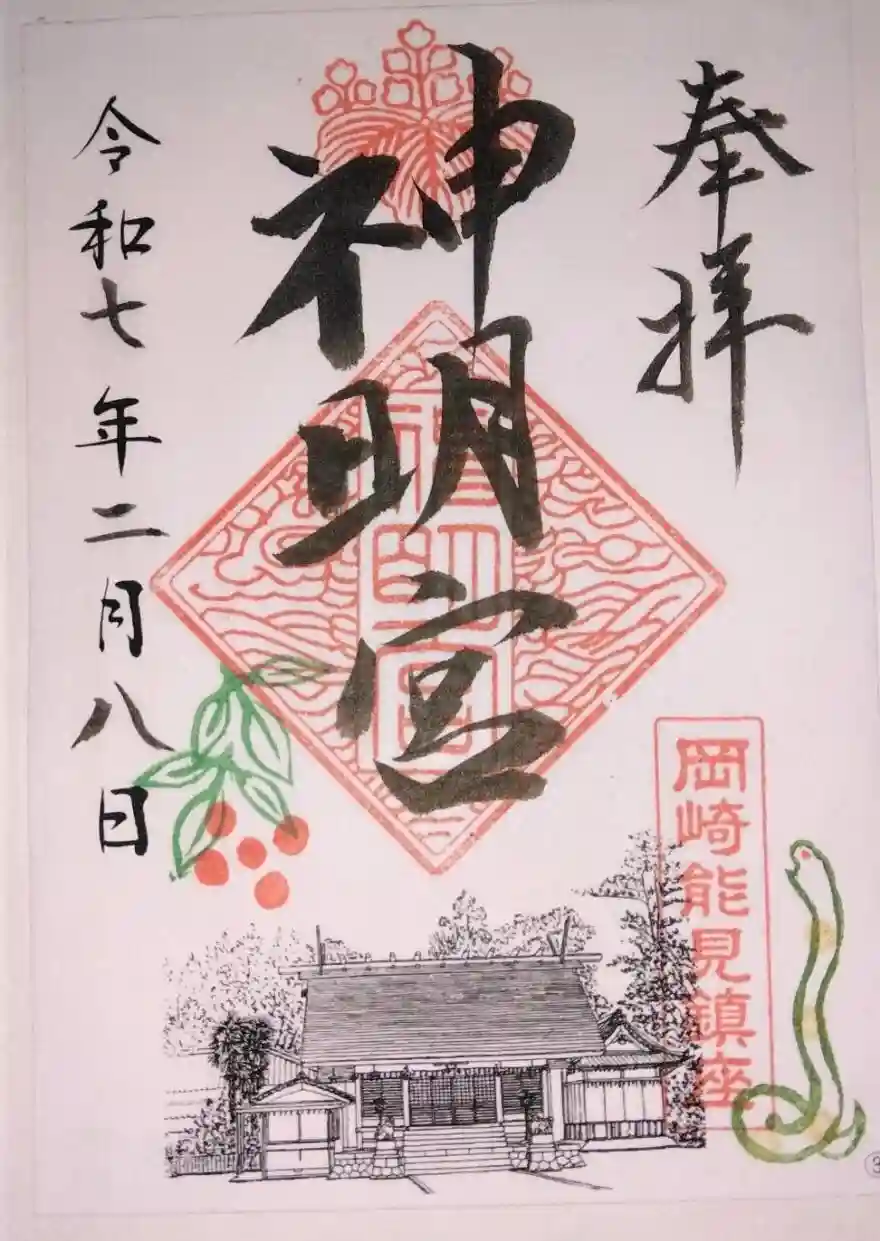 奉拝
神明宮
神明宮
岡崎能見鎮座
令和七年二月八日
3